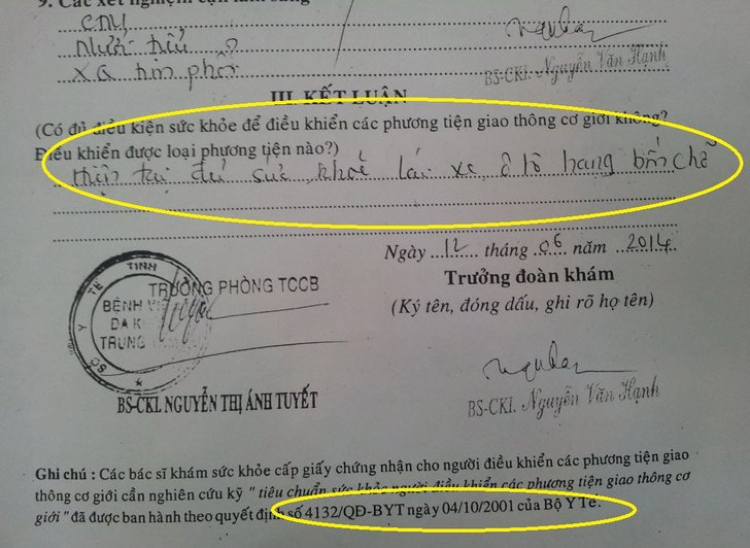 9. Các xét nghiệm cận lâm sàng
CTM
Nước tiểu
XQ tim phổi
BS-CKI. Nguyễn Văn Hạnh
III. KẾT LUẬN
(Có đủ điều kiện sức khỏe để điều khiển các phương tiện giao thông cơ giới không?
Điều khiển được loại phương tiện nào?)
Hiện tại đủ sức khoẻ lái xe ô tô hạng bốn chỗ
Ngày 12 tháng 06 năm 2014
Trưởng đoàn khám
(Ký tên, đóng dấu, ghi rõ họ tên)
SỞ Y TẾ TỈNH
BỆNH VIỆN
ĐA K
TRUNG
TRƯỞNG PHÒNG TCCB
BS-CKI. NGUYỄN THỊ ÁNH TUYẾT
BS-CKI. Nguyễn Văn Hạnh
Ghi chú : Các bác sĩ khám sức khỏe cấp giấy chứng nhận cho người điều khiển các phương tiện giao
thông cơ giới cần nghiên cứu kỹ " tiêu chuẩn sức khỏe người điều khiển các phương tiện giao thông cơ
giới " đã được ban hành theo quyết định số 4132/QĐ-BYT ngày 04/10/2001 của Bộ Y Tế.